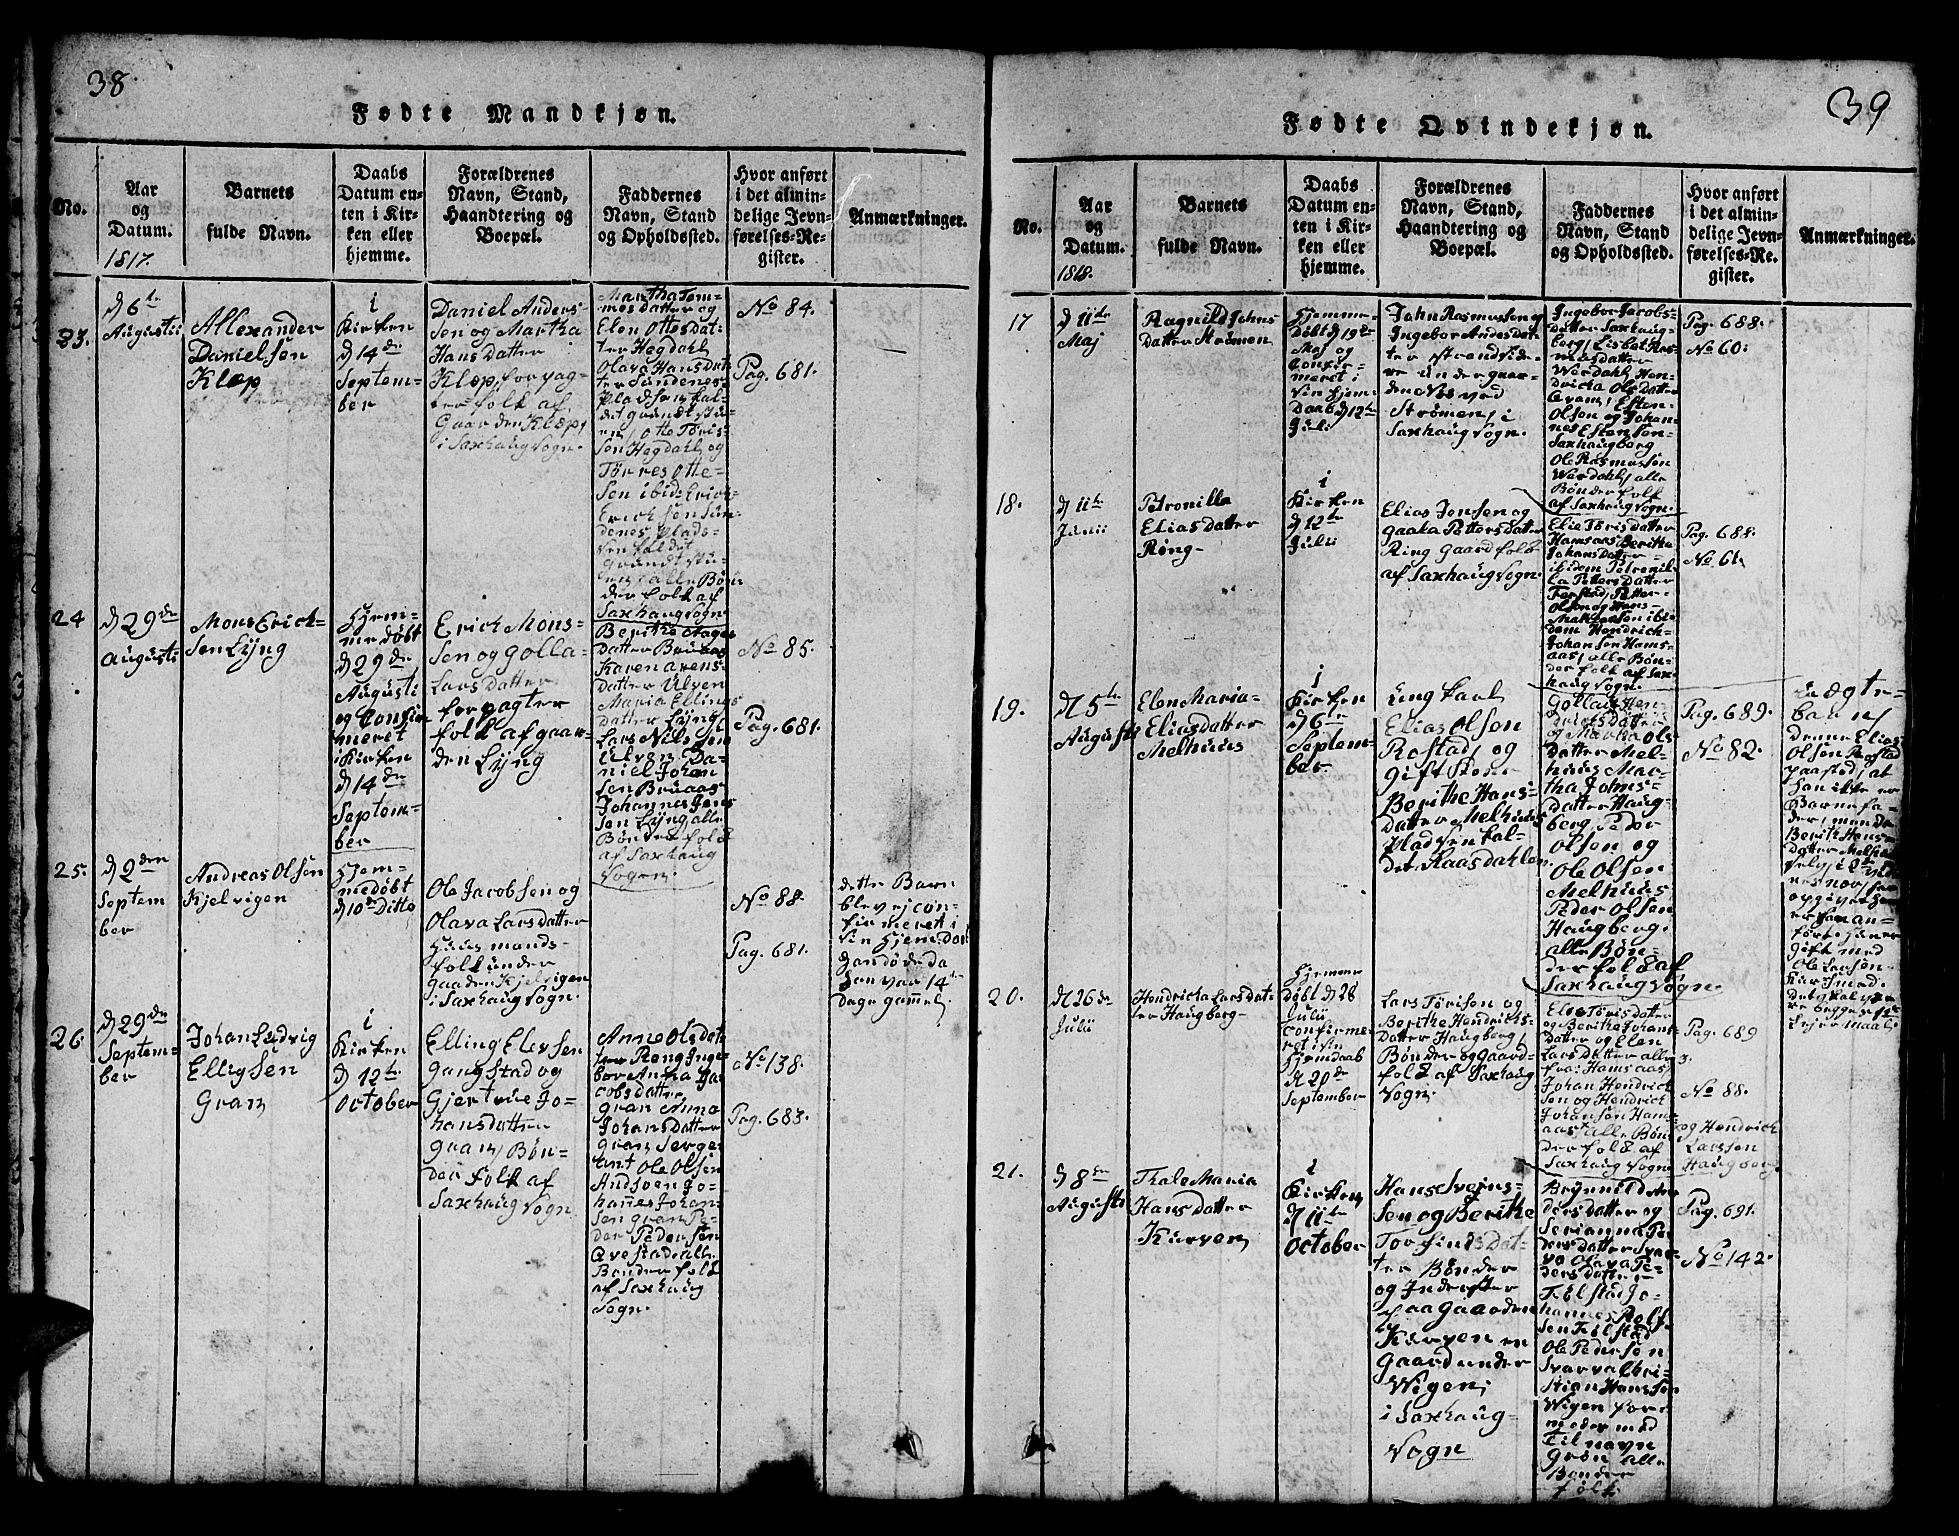 38
Fødte Mandkjøn.
No.
Aar
og
Datum.
1817.
Barnets
fulde Navn.
Daabs
Datum en-
ten i Kir-
ken eller
hjemme.
Forældrenes
Navn, Stand,
Haandtering og
Boepæl.
Faddernes
Navn, Stand
og Opholdssted.
Hvor anført
i det almin-
delige Jevn-
førelses-Re-
gister.
Anmærkninger.
23.
d 6te
Augustii
Allexander
Danielsen
Klæp
i
Kirken
d 14de
Septem-
ber
Daniel Anders-
sen og Martha
Hansdatter
Klæp, forpag-
ter folk af
Gaarden Klæp,
i Saxhaug Sogn.
Martha Tom-
mesdatter og
Elen Ottesdat-
ter Hegdahl
Olava Hansdat-
ter Sundenes-
Pladsen kal-
det grundtstu-
en, Otte Tøris-
sen Hegdahl og
Tørres Otte-
sen ibid: Erich
Erichsen Sun-
denes Plads-
sen kaldet
grundtstu-
en, alle Bøn-
der folk af
Saxhaug Sogn.
No 84.
Pag. 681.
24
d 29de
Augusti
Mons Erich-
sen Lÿng
Hjem-
medøbt
d 29de
Augusti
og Confir-
meret
i Kirken
d 14de
Septem-
ber
Erich Mons-
sen og Golla-
Larsdatter
forpagter
folk af gaar-
den Lÿng
Berithe Aages
datter Bruaas
Karen Arens-
datter Ulven
Maria Ellings
datter Lÿng,
Lars Nilssen
Ulven, Da-
niel Johan
sen Bruaas
Johannes Jens
sen Lÿng, alle
Bønder folk
af Saxhaug
Sogn.
No 85.
Pag. 681.
25.
d 2den
Septem
ber
Andreas Olsen
Kjelvigen
Hjem-
medøbt
d 10de Ditto
Ole Jacobsen og
Olava Larsdatter
Huusmands-
folk under
gaarden Kjelvigen
i Saxhaug Sogn.
No 88.
Pag. 681.
dette Barn
blev ej con-
firmeret i
sin Hjemdaab
han døde da
han var 14
dage gammel.
26.
d 29de
Septem-
ber
Johan Ludvig
Elligsen
Gran
i
Kirken
d 12te
October
Elling Elevsen
Gangstad og
Gjertrue Jo-
hansdatter
Gran, Bøn-
der folk af
Saxhaug Sogn.
Anne Olsdat-
ter Røng, Inge-
bor Anna Ja-
cobsdatter
Gran Anna
Johansdatter
Gran Serge-
ant Ole Olsen
Andsven Jo-
hannes Johan-
sen Gran Pe-
der Pedersen
Qvestad alle
Bønder folk
af Saxhaug
Sogn.
No 138.
Pag. 683.
39
Fødte Qvindekjøn.
No.
Aar
og
Datum.
1818.
Barnets
fulde Navn.
Daabs
Datum en-
ten i Kir-
ken eller
hjemme.
Forældrenes
Navn, Stand,
Haandtering og
Boepæl.
Faddernes
Navn, Stand
og Opholdssted.
Hvor anført
i det almin-
delige Jevn-
førelses-Re-
gister.
Anmærkninger.
17
d 11te
Maj
Ragnild Johns
Datter Strömen
Hjemme-
Døbt d 19de
Maj og
Confir-
meret i
sin Hjem-
Daab d 12te
Juli
John Rasmussen og
Ingebor Andersdat
ter Strandside-
re under gaar-
den Næs ved
Strömen, i
Saxhaug Sogn.
Ingebor Jacobs-
datter Saxhaug-
berg, Lisbet Ras-
musdatter
Werdahl, Hen-
dricka Olsdatter
Evans, Esten-
Olsen og Johan-
nes Estensen
Saxhaugberg
Ole Rasmussen
Werdahl, alle
Bønderfolk
af Saxhaug Sogn.
Pag. 688.
No 60.
18.
d 11te
Junii
Petronilla
Eliasdatter
Röng-
i
Kirken
d 12te
Julii
Elias Jensen og
Gaaka Pettersdatter
Ring Gaard folk
af Saxhaug Sogn.
Elie Tørisdatter
Hamsaas, Berithe
Johansdatter
ibidem Petronil-
la Pettersdatter
Forstad, Petter
Olsen og Hans
Mathiassen ibi-
dem Hendrich
Johansen Hams-
aas, alle Bøn-
der folk af Sax-
haug Sogn.
Pag. 688.
No 61.
19.
d 5te
Augusti
Elen Maria-
Eliasdatter
Melhuus
i
Kirken
d 6te
Septem-
ber.
ung karl
Elias Olsen
Rostad, og
gift kone
Berithe Hans-
datter Melhuus
Pladsen kal-
det Raasdahlen
Gollaug Hen-
drichsdatter
og Marka Ols
datter Mel-
huus Mar-
tha Johns-
datter Haug-
berg, Peder
Olsen og
Ole Olsen
Melhuus
Peder Olsen
Haugberg,
alle Bøn-
der folk af
Saxhaug Sogn.
Pag. 689.
No 82.
Uægte-
barn,
denne Elias
Olsen Rostad
paastod, at
han ikke er
Barnefa-
der, men da
Berith Hans-
datter Melhuus
gift med
Ole Larsen-
20.
d 26de
Julii
Hendricka Larsdat-
ter Haugberg-
Hjemme
døbt d 28
Julii
confirme
ret i sin
Hjemdaab
d 20de
September
Lars Tørisen og
Berithe Hendrichs-
datter Haugberg,
Bønder og gaard-
folk af Saxhaug
Sogn.
Elie Tørisdatter
og Berithe Johans
datter og Elen
Larsdatter alle
fra: Hamsaas,
Johan Hendrich
sen og Hendrich
Johansen Hams
aas, alle Bøn-
der folk af
Saxhaug Sogn
Pag. 689
No 88.
og Hendrich
Larssen
Haugberg.
21.
d 8de
Augusti
Thale Maria
Hansdatter
Kurven
i
Kirken
d 11te
October
Hans Svens-
sen og Berithe
Torfindsdat-
ter Bønder
og Inderster
paa Gaarden
Kurven en
Gaard under
Wigen,
i Saxhaug-
Sogn
Brynnild An-
dersdatter og
Serianna Pe-
dersdatter Svar-
va Olava Pe-
dersdatter
Fiilstad Jo-
hannes Rolf-
sen Fiilstad
Ole Pedersen
Svarva Chri-
stian Hanssen
Wigen for-
meder med
Tilnavn
Grön alle
Bønder
folk.
Pag. 691.
No 142.